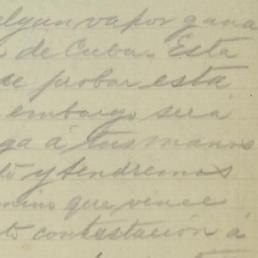 algun vapor gana
de Cuba. Esta
de probar esta
embargo será
ga á tus manos
y tendremos
que vence
contestación á